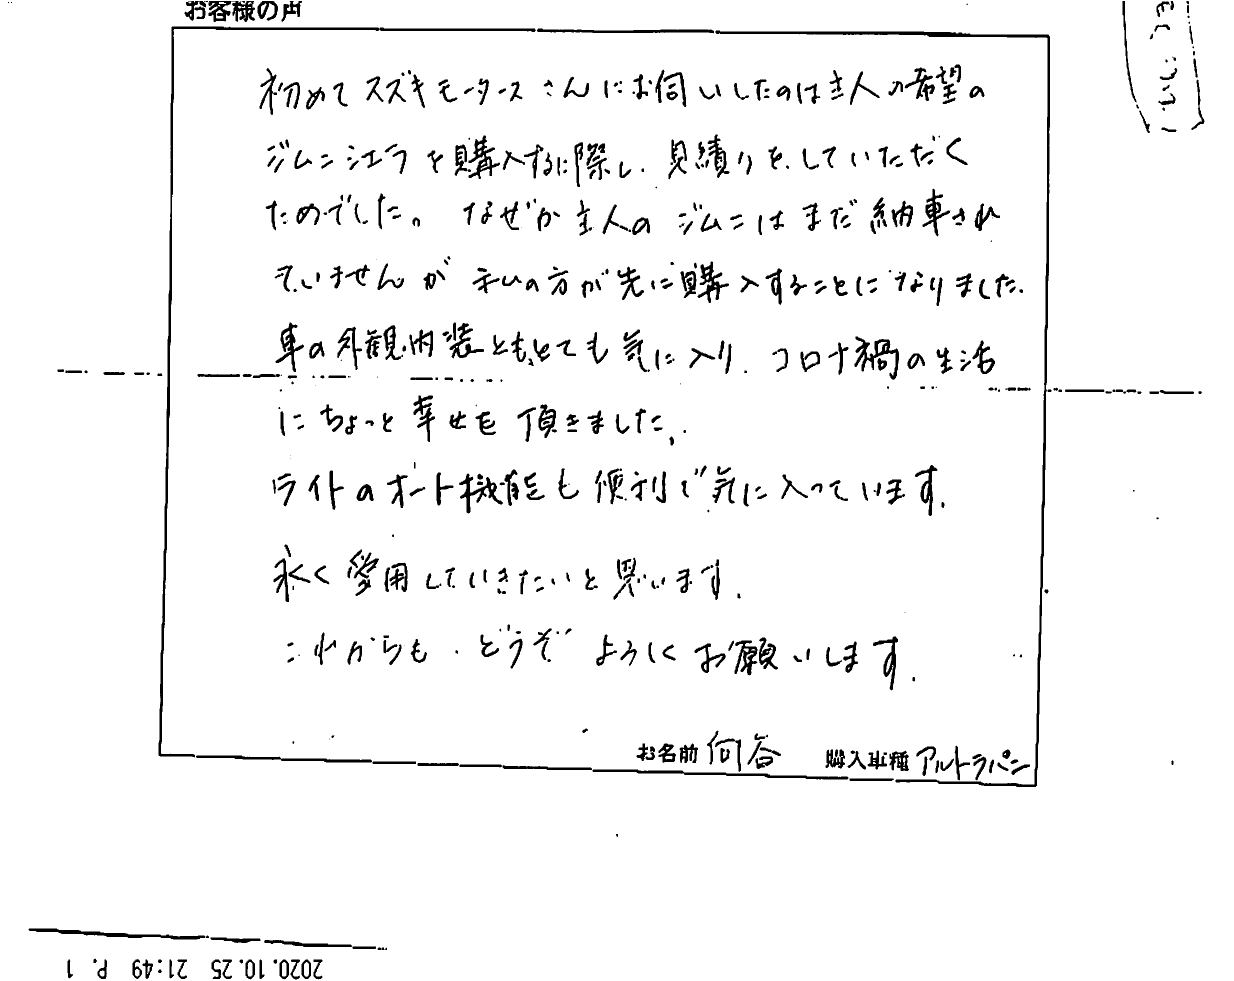 お客様の声
初めてスズキモータースさんにお伺いしたのは主人の希望の
ジムニシエラを購入するに際し、見積りをしていただく
ためでした。なぜか主人のジムニはまだ納車され
ていませんが私の方が先に購入することになりました.
車の外観・内装ともとても気に入り、コロナ禍の生活
にちょっと幸せを頂きました.
ライトのオート機能も便利で気に入っています.
永く愛用していきたいと思います.
これからも、どうぞよろしくお願いします.
お名前 何谷 購入車種 アルトラパン
2020.10.25 21:49 P. 1